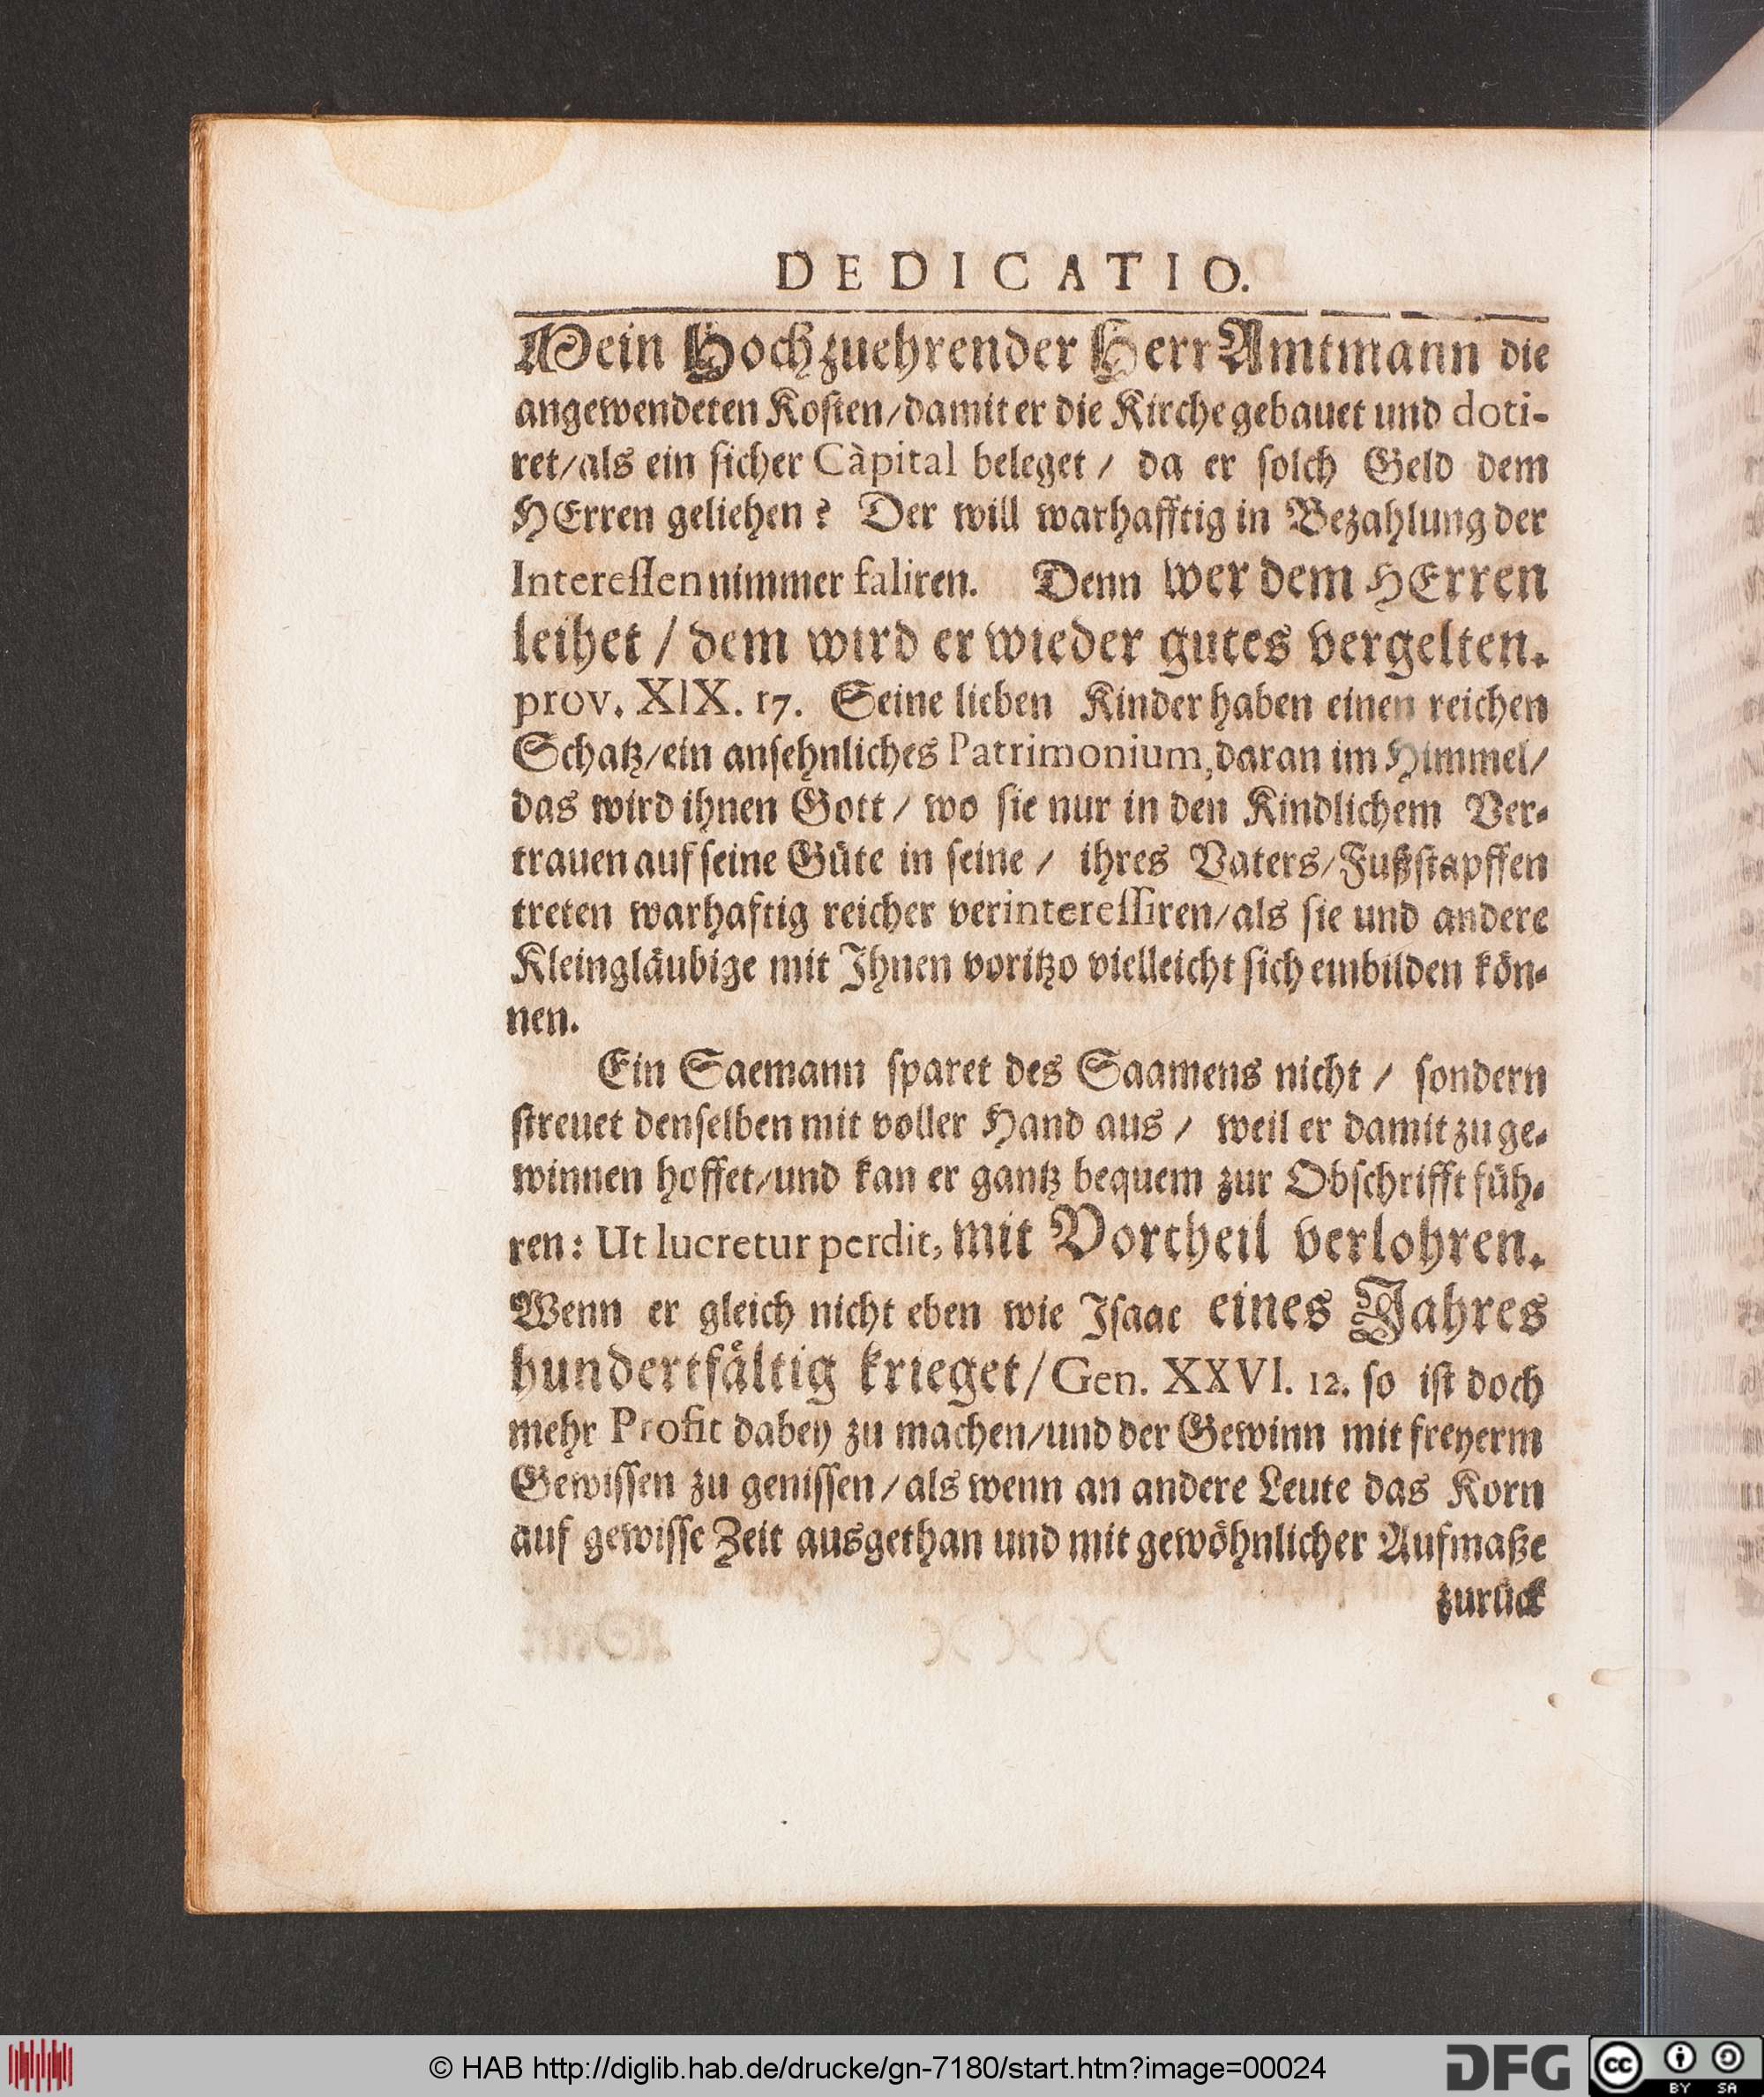 DEDICATIO.
Mein Hochzuehrender Herr Amtmann die
angewendeten Koſten/damit er die Kirche gebauet und doti-
ret/als ein ſicher Càpital beleget / da er ſolch Geld dem
HErren geliehen? Der will warhafftig in Bezahlung der
Intereſſen nimmer faliren. Denn wer dem HErren
leihet / dem wird er wieder gutes vergelten.
prov. XIX. 17. Seine lieben Kinder haben einen reichen
Schatz/ein anſehnliches Patrimonium, daran im Himmel/
das wird ihnen Gott / wo ſie nur in den Kindlichem Ver-
trauen auf ſeine Güte in ſeine / ihres Vaters/Fußſtapffen
treten warhaftig reicher verintereſſiren/als ſie und andere
Kleingläubige mit Ihnen voritzo vielleicht ſich einbilden kön-
nen.
Ein Saemann ſparet des Saamens nicht / ſondern
ſtreuet denſelben mit voller Hand aus / weil er damit zu ge-
winnen hoffet/und kan er gantz bequem zur Obſchrifft füh-
ren: Ut lucretur perdit, mit Vortheil verlohren.
Wenn er gleich nicht eben wie Iſaac eines Jahres
hundertfältig krieget/Gen. XXVI. 12. ſo iſt doch
mehr Profit dabey zu machen/und der Gewinn mit freyerm
Gewiſſen zu geniſſen/als wenn an andere Leute das Korn
auf gewiſſe Zeit ausgethan und mit gewöhnlicher Aufmaße
zurück
© HAB http://diglib.hab.de/drucke/gn-7180/start.htm?image=00024
DFG
cc BY SA